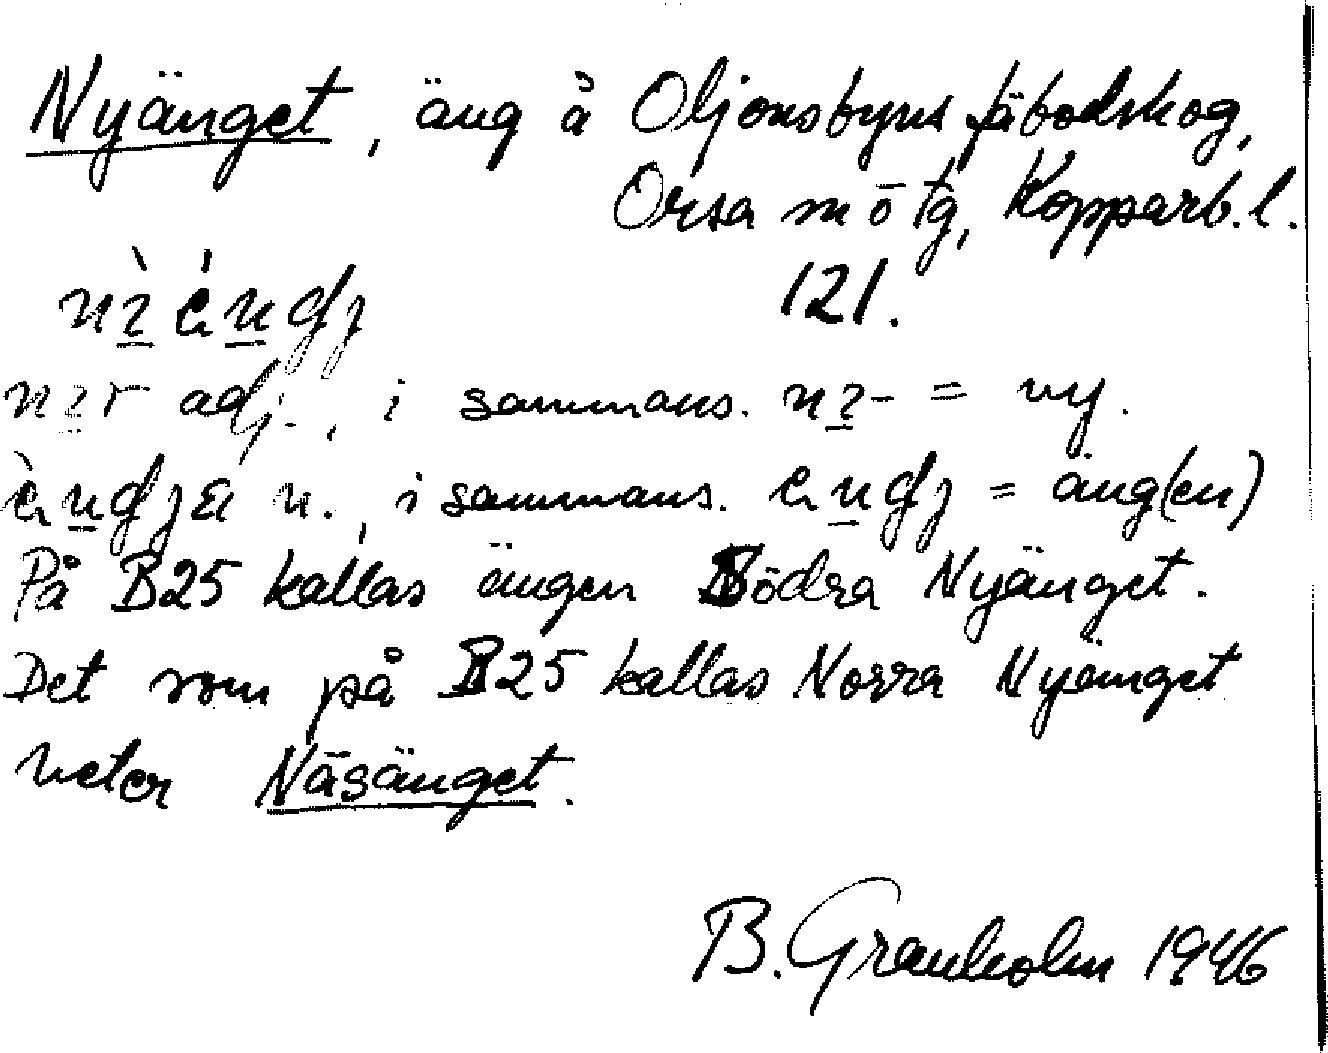 Nyänget, äng å Oljonsbyns fäbodskog,
Orsa m o tg, Kopparb. l.
121.
adj., i sammans. = ny.
n., i sammans. = äng(en)
På B25 kallas ängen Södra Nyänget.
Det som på B25 kallas Norra Nyänget
heter Näsänget.
B. Granholm 1946